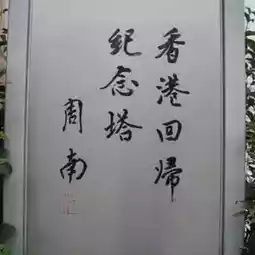 香港回歸
紀念塔
周南